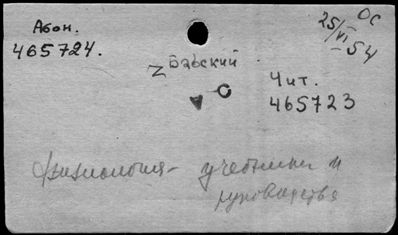 Абон.
465724.
ОС
25/VI-54
Бабский
Чит.
465723
Физиология - учебники и
руководства